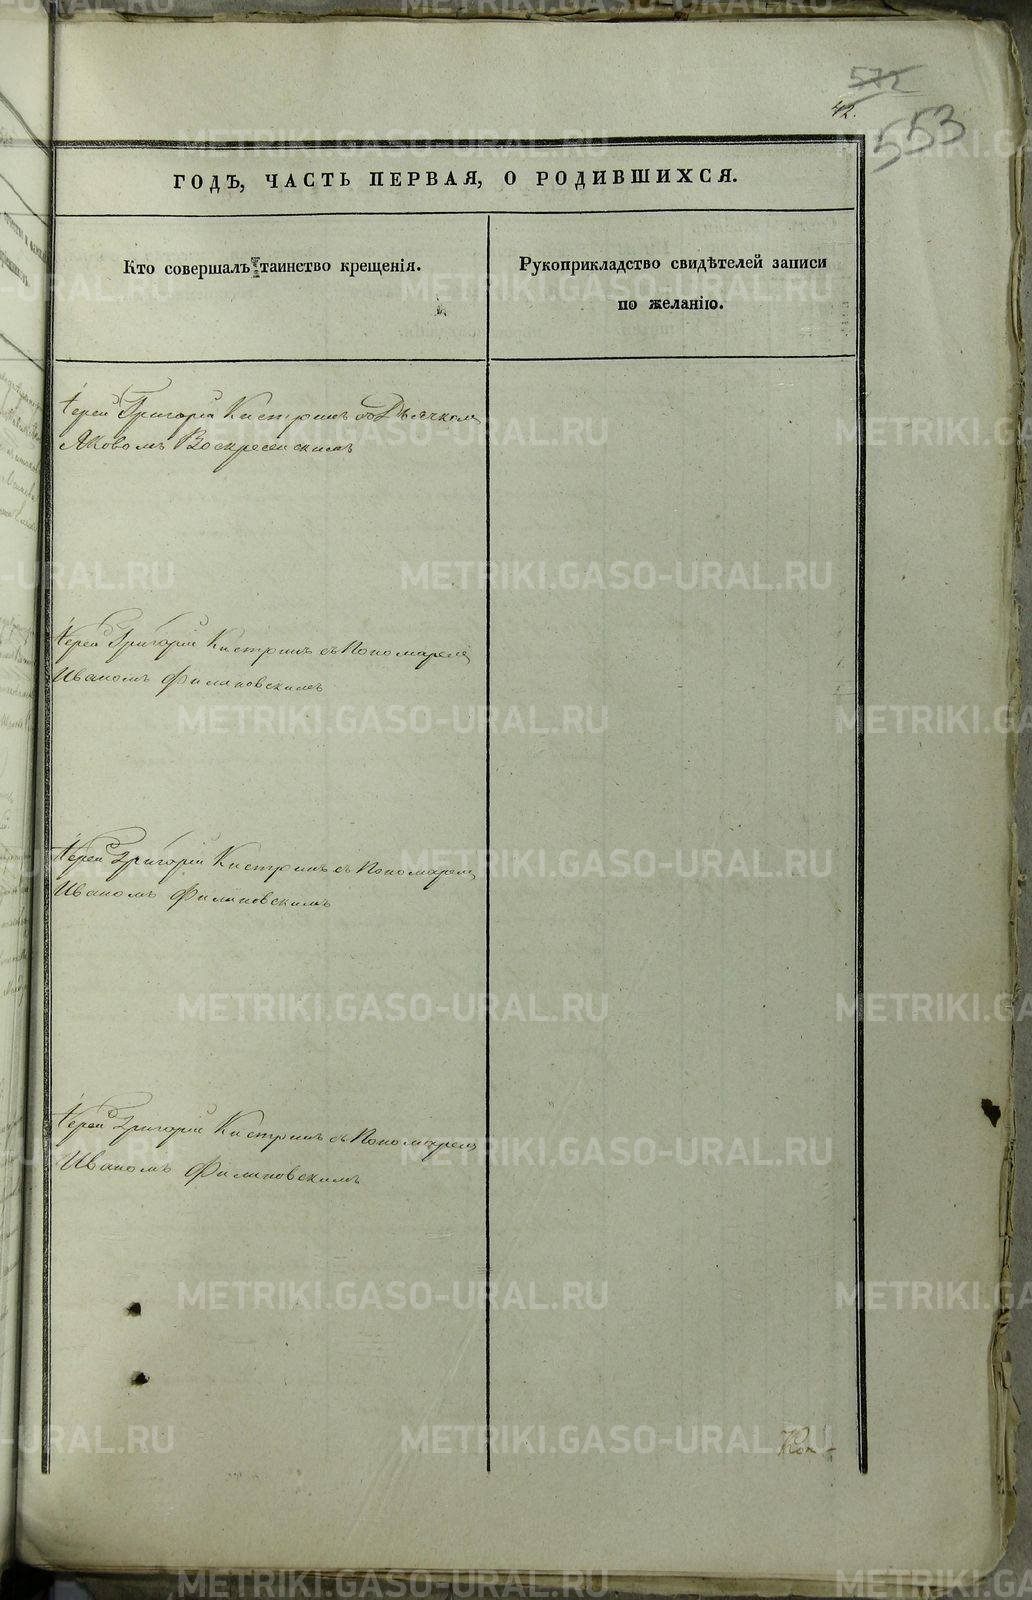 572
42.
553
ГОДЪ, ЧАСТЬ ПЕРВАЯ, О РОДИВШИХСЯ.
Кто совершалъ таинство крещенія.
Рукоприкладство свидѣтелей записи
по желанію.
Іерей Григорій Кистринъ съ Дьячкомъ
Яковомъ Воскресенскимъ
Іерей Григорій Кистринъ съ Пономаремъ
Иваномъ Филиповскимъ
Іерей Григорій Кистринъ съ Пономаремъ
Иваномъ Филиповскимъ
Іерей Григорій Кистринъ съ Пономаремъ
Иваномъ Филиповскимъ
METRIKI.GASO-URAL.RU